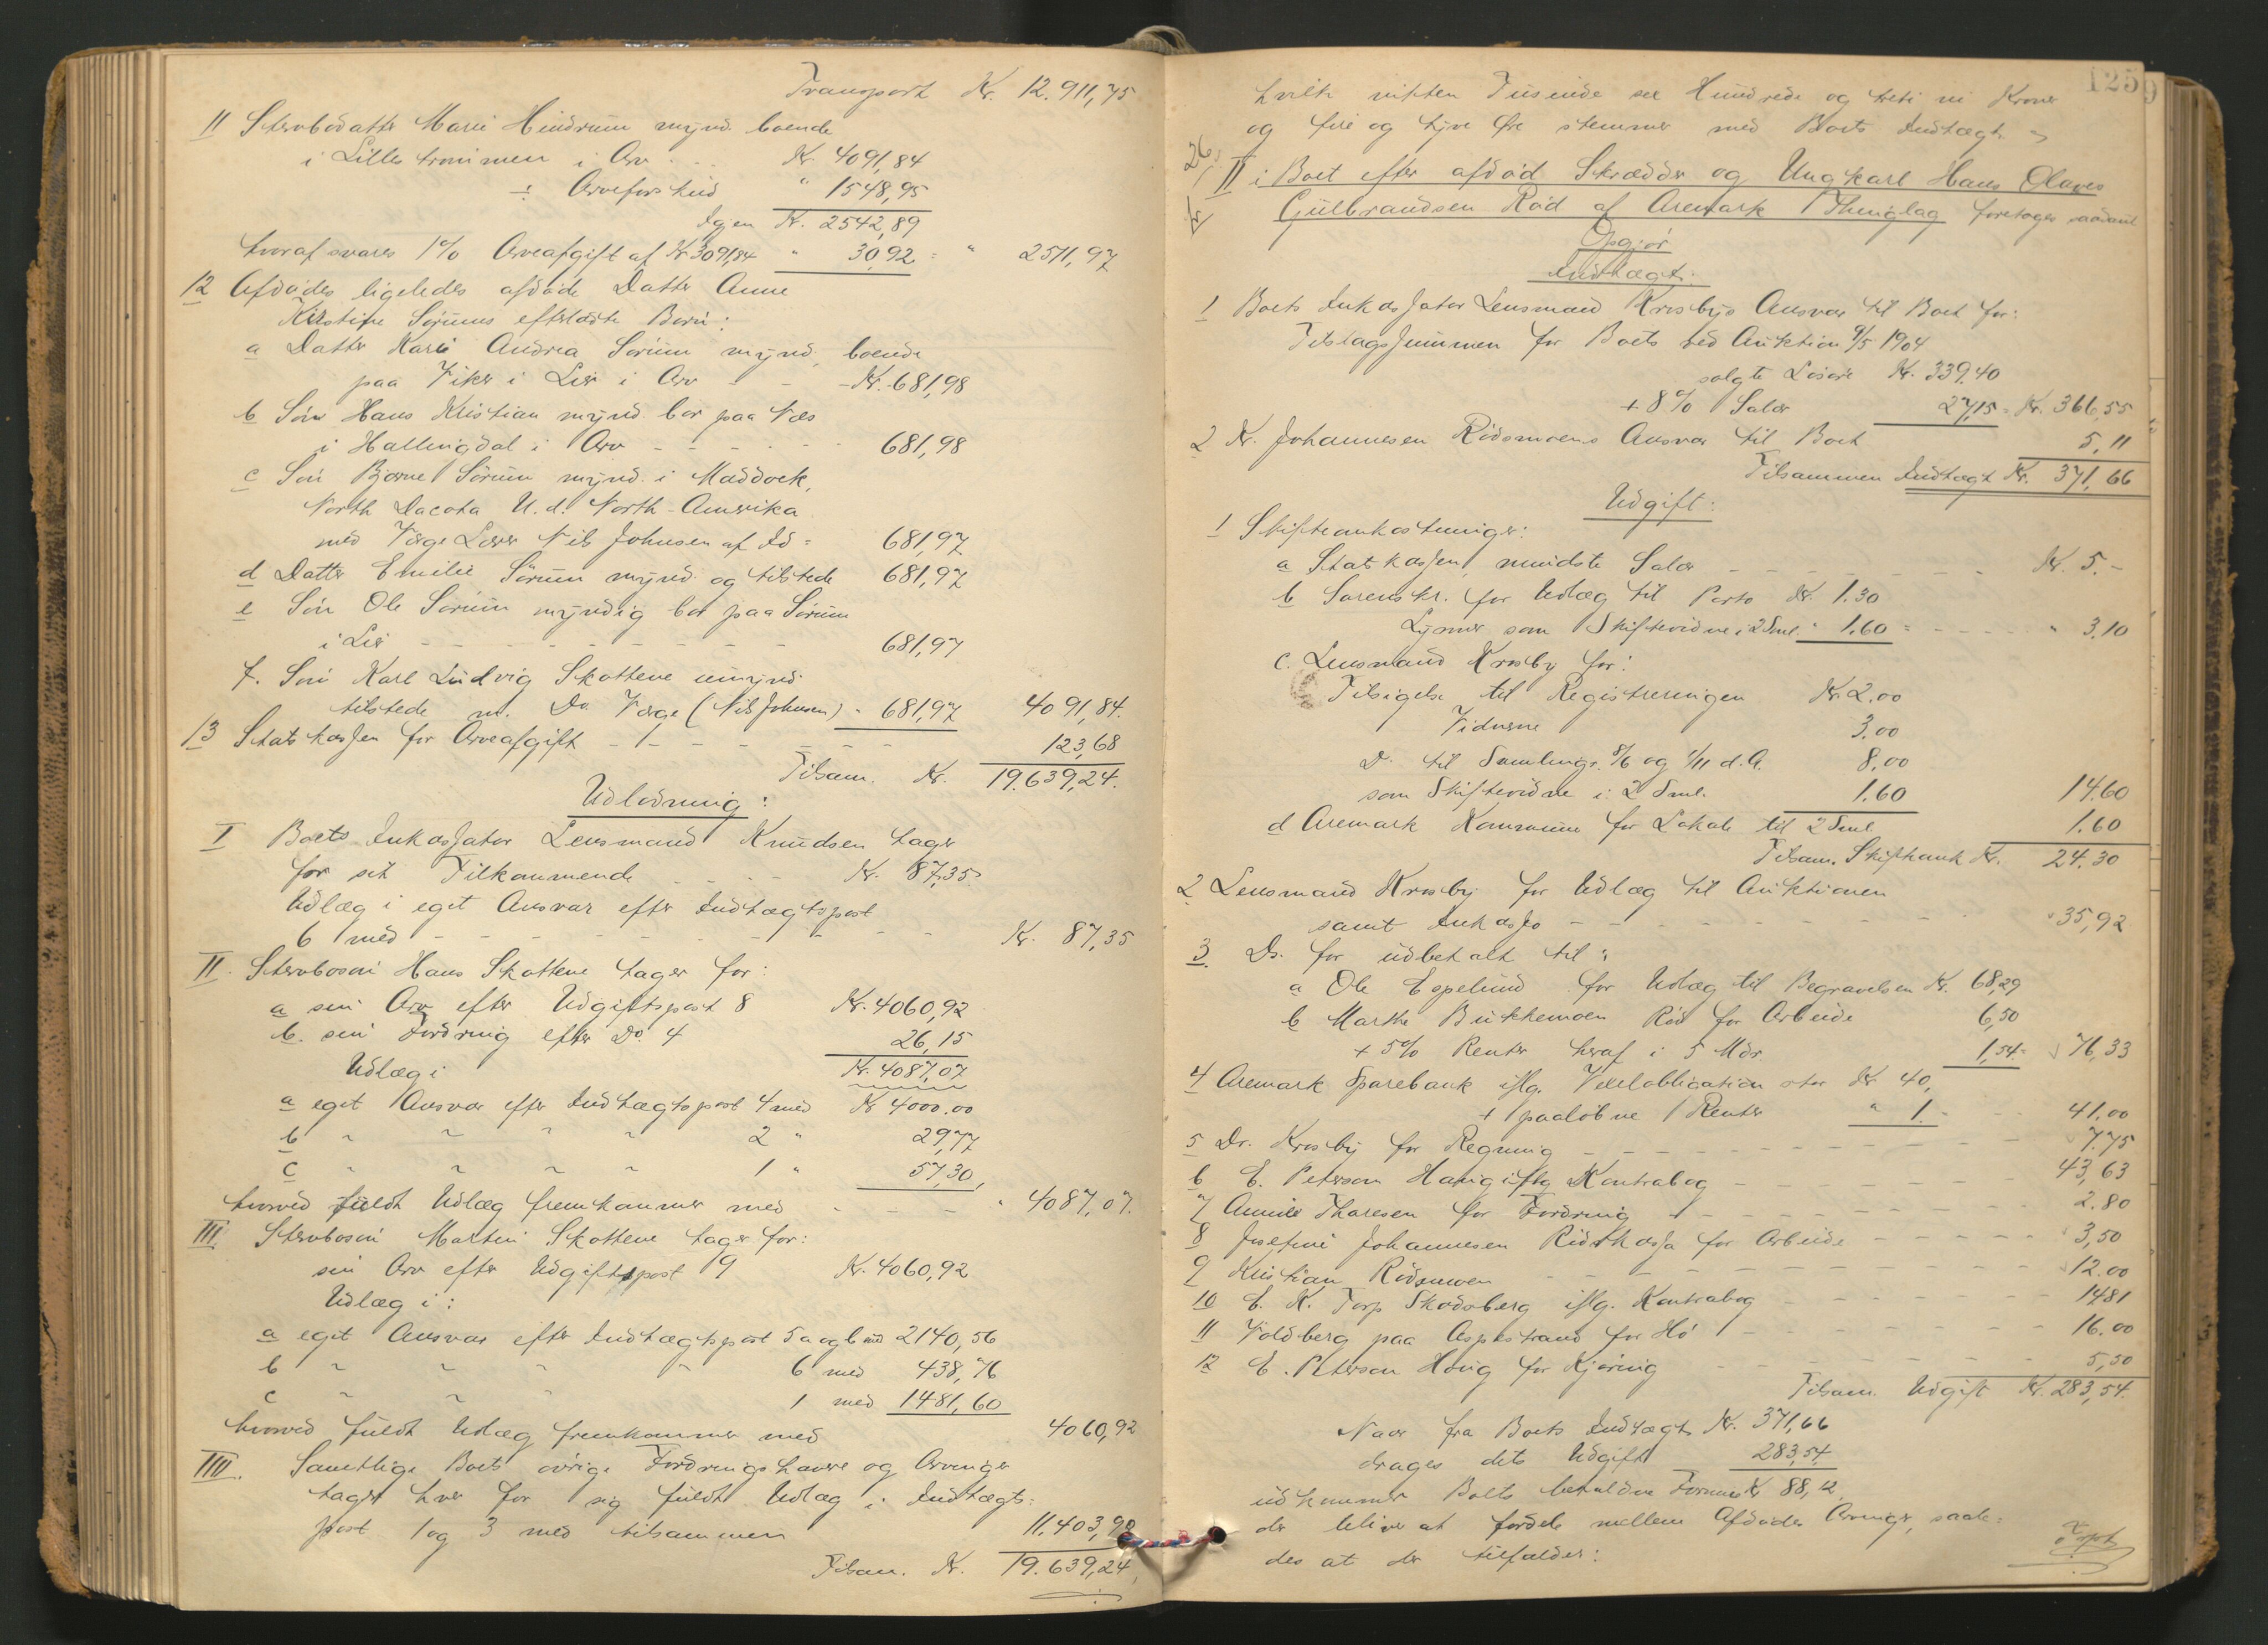 Transport Kr. 12.911,75
11 Stervbodatter Marie Hindrum mynd. boende
i Lilletrommen i Arv Kr. 4091,84
÷ Arveforskud " 1548,95
Igen Kr. 2542,89
hvoraf svares 1% Arveafgift af Kr 3091,84 " 30,92 = " 2511,97
12 Afdødes ligeledes afdøde Datter Anne
Kirstine Sørums efterladte Børn:
a Datter Karie Andrea Sørum mynd. boende
paa Viker i Lier i Arv - - Kr. 681,98
b Søn Hans Kristian mynd. bor paa Næs
i Hallingdal i Arv - - - - 681,98
c Søn Bjarne Sørum mynd. i Maddock,
North Dacota U. d. North-Amerika
med Værge Lærer Nils Johnsen af Id = 681,97
d Datter Emilie Sørum mynd. og tilstede 681,97
e Søn Ole Sørum myndig bor paa Sørum
i Lier - - - - - - - 681,97
f. Søn Karl Ludvig Skottene umynd.
tilstede m. Do Værge (Nils Johnsen) " 681,97 4091,84.
13 Statskassen for Arveafgift - - - - - 123,68
Tilsam. Kr. 19.639,24.
Udlodning:
I Boets Inkassator Lensmand Knudsen tager
for sit Tilkommende - - - Kr. 87,35
Udlæg i eget Ansvar efter Indtægtspost
6 med - - - - - - - - - Kr. 87,35
II. Stervbosøn Hans Skottene tager for:
a sin Arv efter Udgiftspost 8 Kr. 4060,92
b. sin Fordring efter Do. 4 26,15
Udlæg i Kr. 4087,07
a eget Ansvar efter Indtægtspost 4 med Kr 4000.00
b " " " " 2 " 29,77
c " " " " 1 " 57,30,
hvorved fuldt Udlæg fremkommer med - - - - " 4087,07.
III Stervbosøn Martin Skottene tager for:
sin Arv efter Udgiftspost 9 Kr. 4060,92
Udlæg i:
a eget Ansvar efter Indtægtspost 5 a og b med 2140,56
b " " " " 6 med 438,76
c " " " 1 med 1481,60
hvorved fuldt Udlæg fremkommer med 4060,92
IIII. Samtlige Boets øvrige Fordringshavere og Arvinger
tager hver for sig fuldt Udlæg i Indtægts-
post 1 og 3 med tilsammen 11.403,90
Tilsam. Kr. 19.639,24,
1259
hvilke nitten Tusinde sex Hundrede og treti ni Kroner
og fire og tyve Øre stemmer med Boets Indtægt. "
26,
II i Boet efter afdød Skrædder og Ungkarl Hans Olaves
Gulbrandsen Rød af Aremark Thinglag foretoges saadant
Opgjør
Indtægt:
1 Boets Inkassator Lensmand Krosbys Ansvar til Boet for:
Tilslagssummen for Boets ved Auktion 9/5 1904
solgte Løsøre Kr. 339.40
+ 8% Salær 27,15 = Kr. 366,55
2 K. Johannesen Rødsmoens Ansvar til Boet 5,11
Tilsammen Indtægt Kr. 371,66
Udgift:
1 Skifteomkostninger:
a Statskassen, mindste Salær - - - - - - Kr. 5.-
b Sorenskr. for Udlæg til Porto Kr. 1.30
som Skiftevidne i 2 Sml. " 1.60 = - - - - " 3.10
c. Lensmand Krosby for:
Tilsigelse til Registreringen Kr. 2.00
Vidnerne 3.00
Do til Samlinger 8/6 og 1/11 d. A. 8,00
som Skiftevidne i 2 Sml. 1.60 14.60
d Aremark Kommune for Lokale til 2 Sml 1.60
Tilsam. Skifteomk Kr. 24.30
2 Lensmand Krosby for Udlæg til Auktionen
samt Inkasso - - - - - - - " 35,92
3. Ds. for udbetalt til:
a Ole Espelund for Udlæg til Begravelsen Kr. 68,29
b Marthe Bukkemoen Rød for Arbeide 6,50
+ 5% Renter heraf i 5 Mdr. 1,54 = 76,33
4 Aremark Sparebank iflg. Vexelobligation stor Kr 40,
+ paaløbne Renter " 1. - - 41.00
5 Dr. Krosby for Regning - - - - - - - 7.75
6 E. Peterson iflg Kontrabog - - - - - 43,63
7 Thoresen for Fordring - - - - - - 2.80
8 Josefine Johannesen for Arbeide - - - - 3,50
9 Kristian Rødsmoen - - - - - - - 12.00
10 E. K. Torp Skodsberg iflg. Kontrabog - - - - - 14.81
11 Voldberg paa Aspestrand for Hø - - - - - - 16.00
12 E. Peterson for Kjøring - - - - - - 5,50
Tilsam. Udgift Kr. 283,54.
Naar fra Boets Indtægt Kr. 371,66
drages dets Udgift 283,54
udkommer Boets beholdne Formue Kr 88,12,
der bliver at fordele mellem Afdødes Arvinger, saale-
des at der tilfalder: